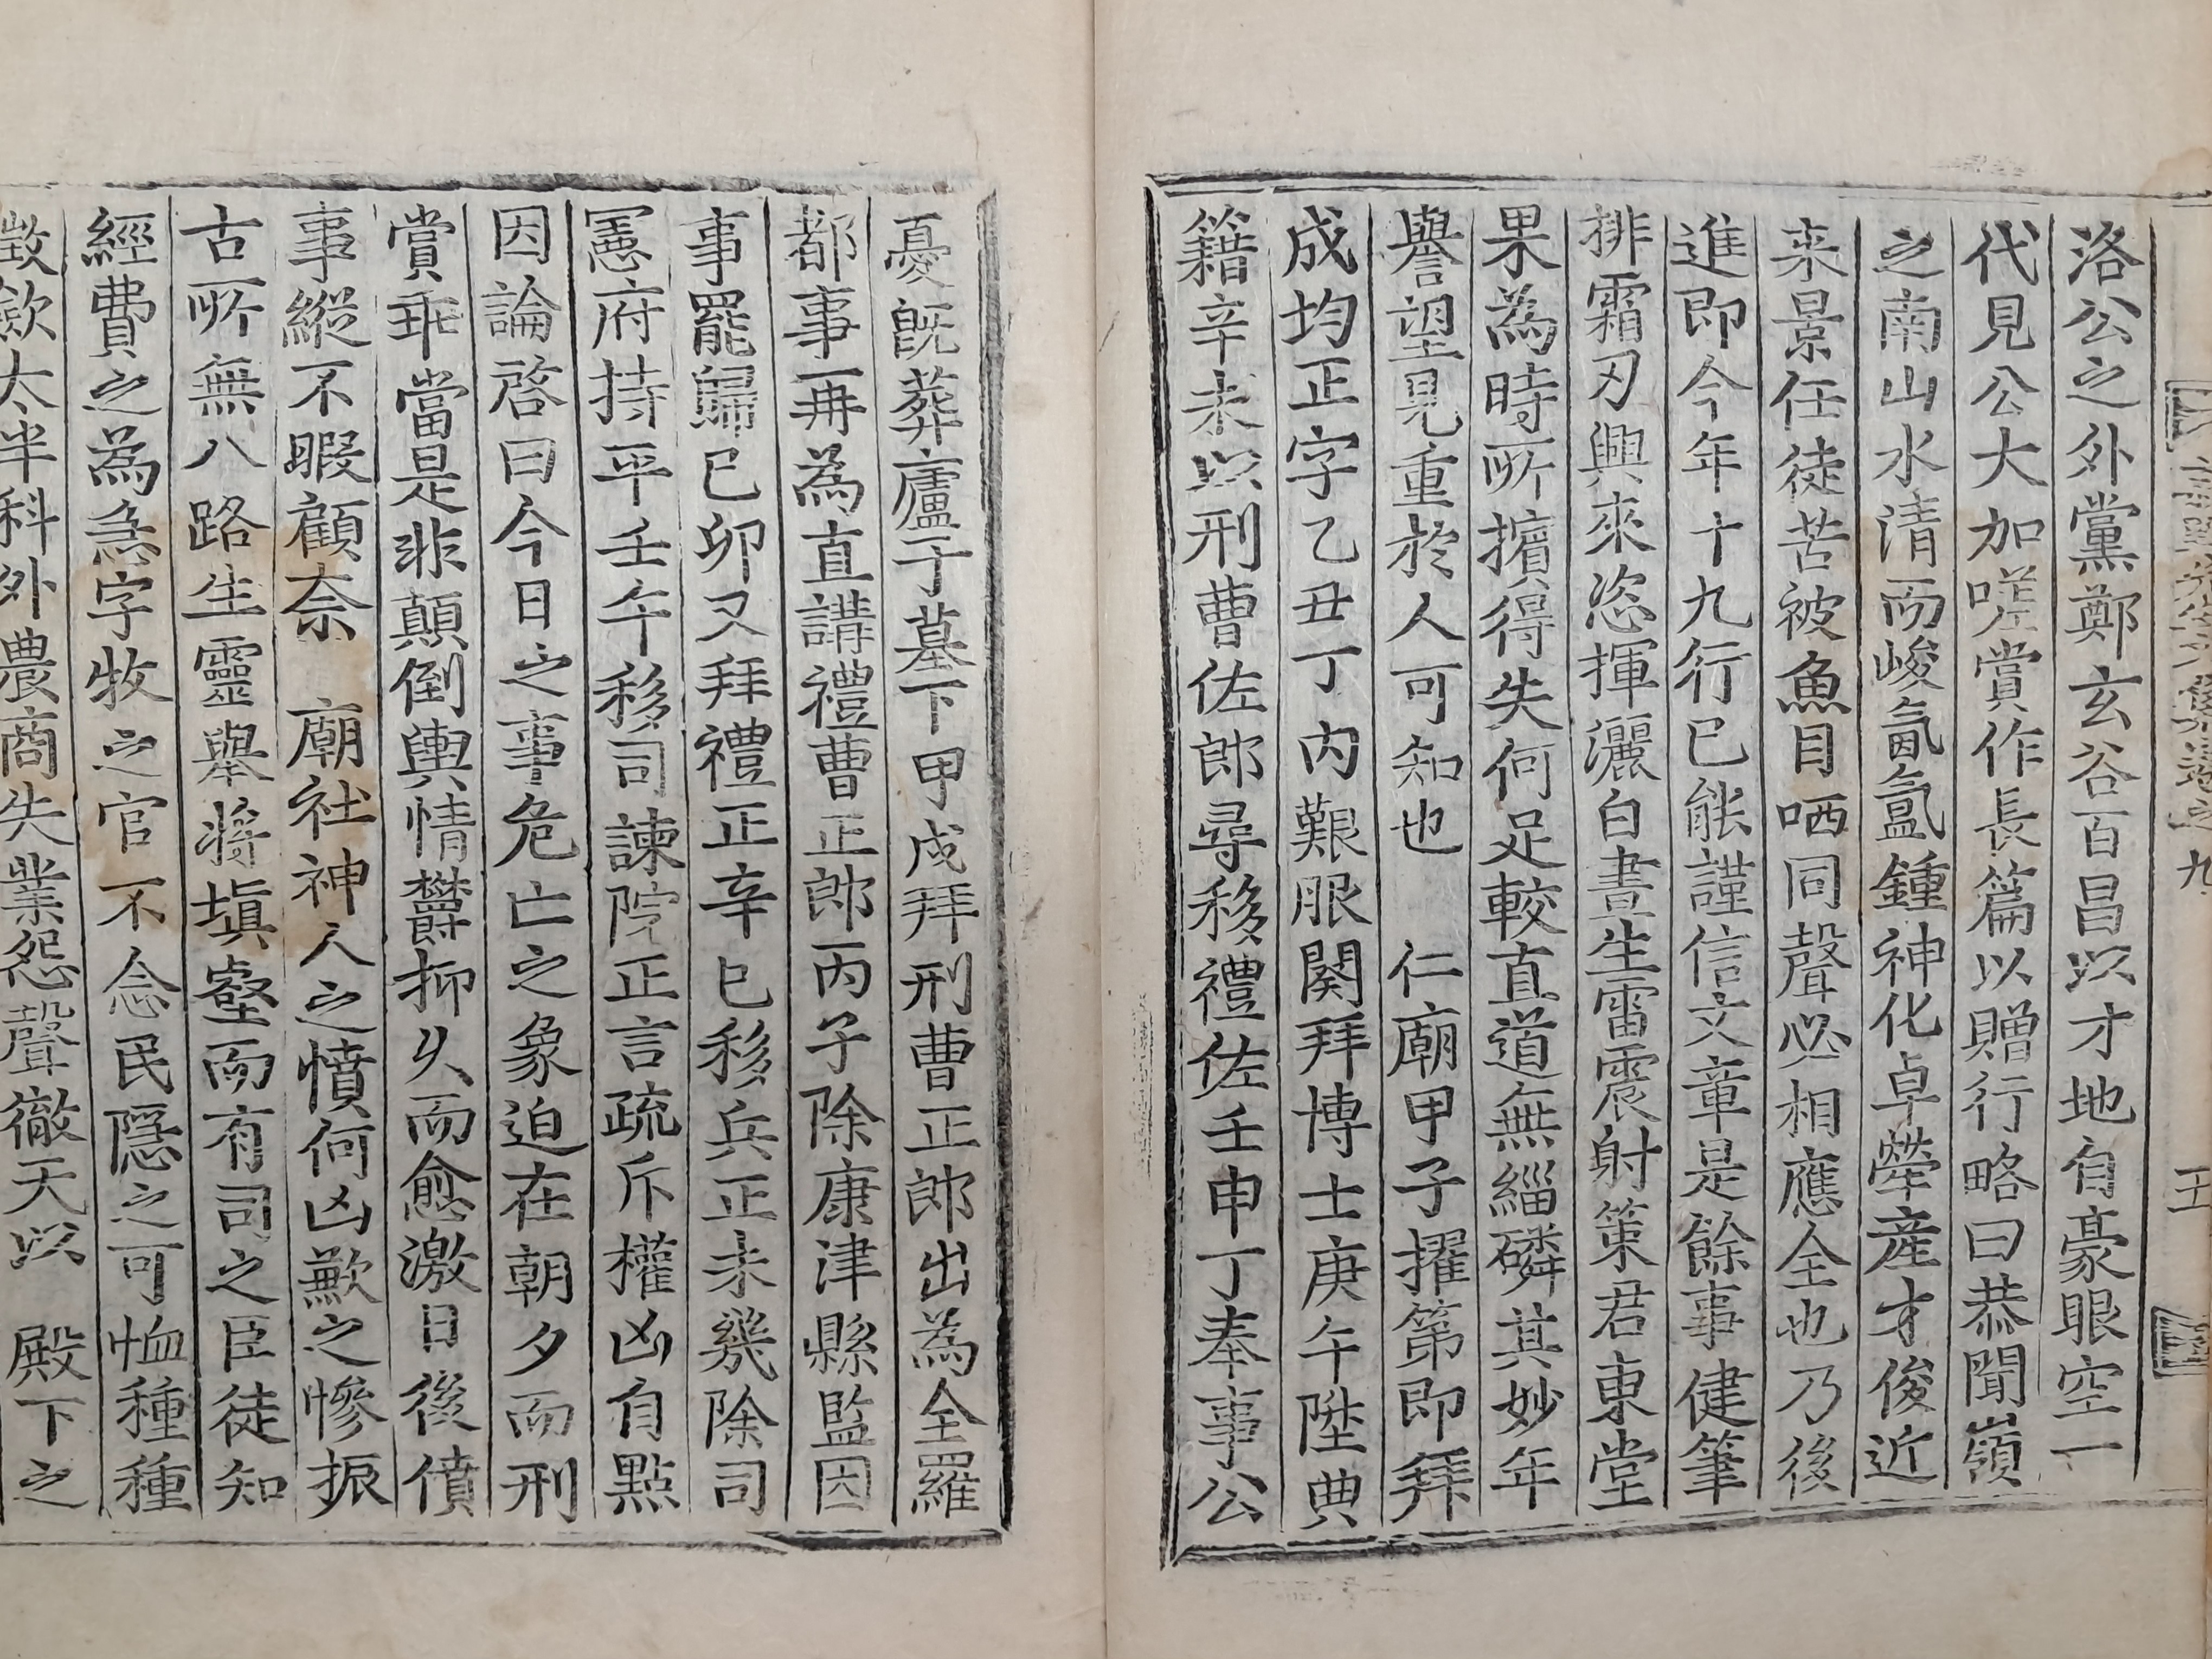 洛公之外黨鄭玄谷百昌以才地自豪眼空一
代見公大加嗟賞作長篇以贈行略曰恭聞嶺
之南山水清而峻氤氳鍾神化卓犖産才俊近
来景任徒苦被魚目哂同聲必相應全也乃後
進即今年十九行已能謹信文章是餘事健筆
排霜刃興來恣揮灑白晝生雷震射策君東堂
果為時所擯得失何足較直道無緇磷其妙年
譽望見重於人可知也 仁廟甲子擢第即拜
成均正字乙丑丁内艱服闋拜博士庚午陞典
籍辛未以刑曹佐郎尋移禮佐壬申丁奉事公
憂既葬廬于墓下甲戌拜刑曹正郎出為全羅
都事再為直講禮曹正郎丙子除康津縣監因
事罷歸己卯又拜禮正辛巳移兵正未幾除司
憲府持平壬午移司諫院正言疏斥權凶自點
因論啓曰今日之事危亡之象迫在朝夕而刑
賞乖當是非顛倒輿情欝抑久而愈激日後僨
事縱不暇顧奈 廟社神人之憤何凶歉之慘振
古所無八路生靈舉將塡壑而有司之臣徒知
經費之為急字牧之官不念民隱之可恤種種
徵斂太半科外農商失業怨聲徹天以 殿下之